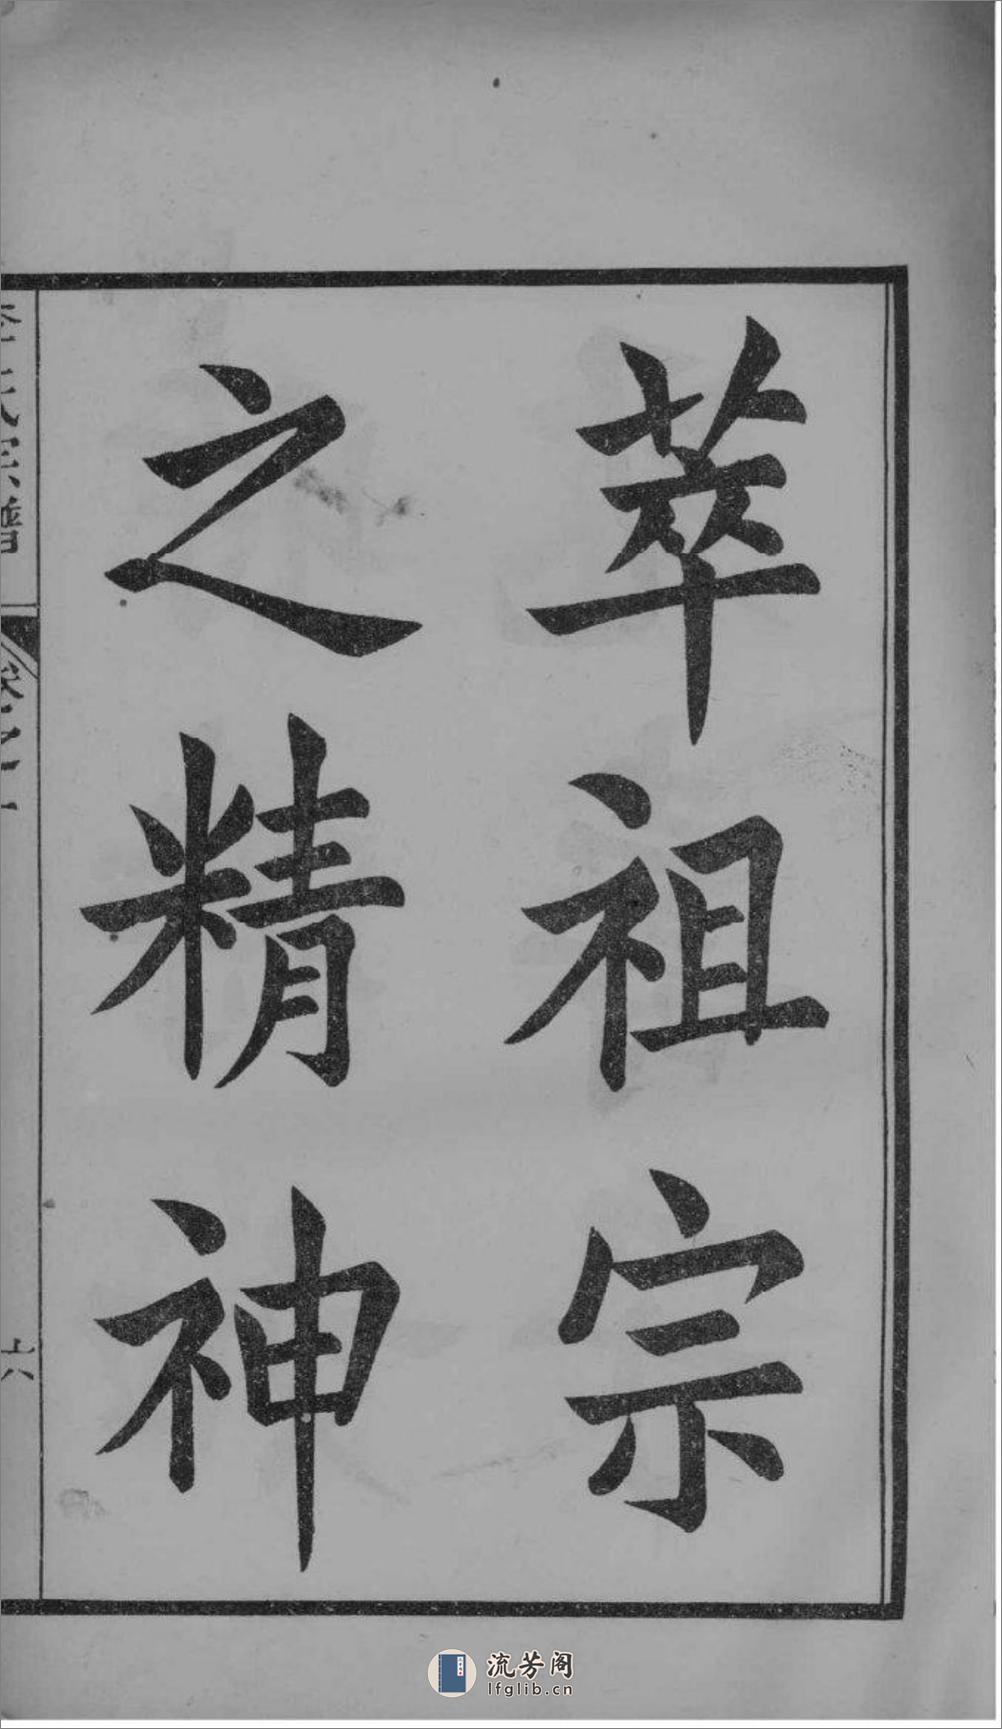 萃祖宗
之精神
宗譜
六
流芳阁
lfglib.cn